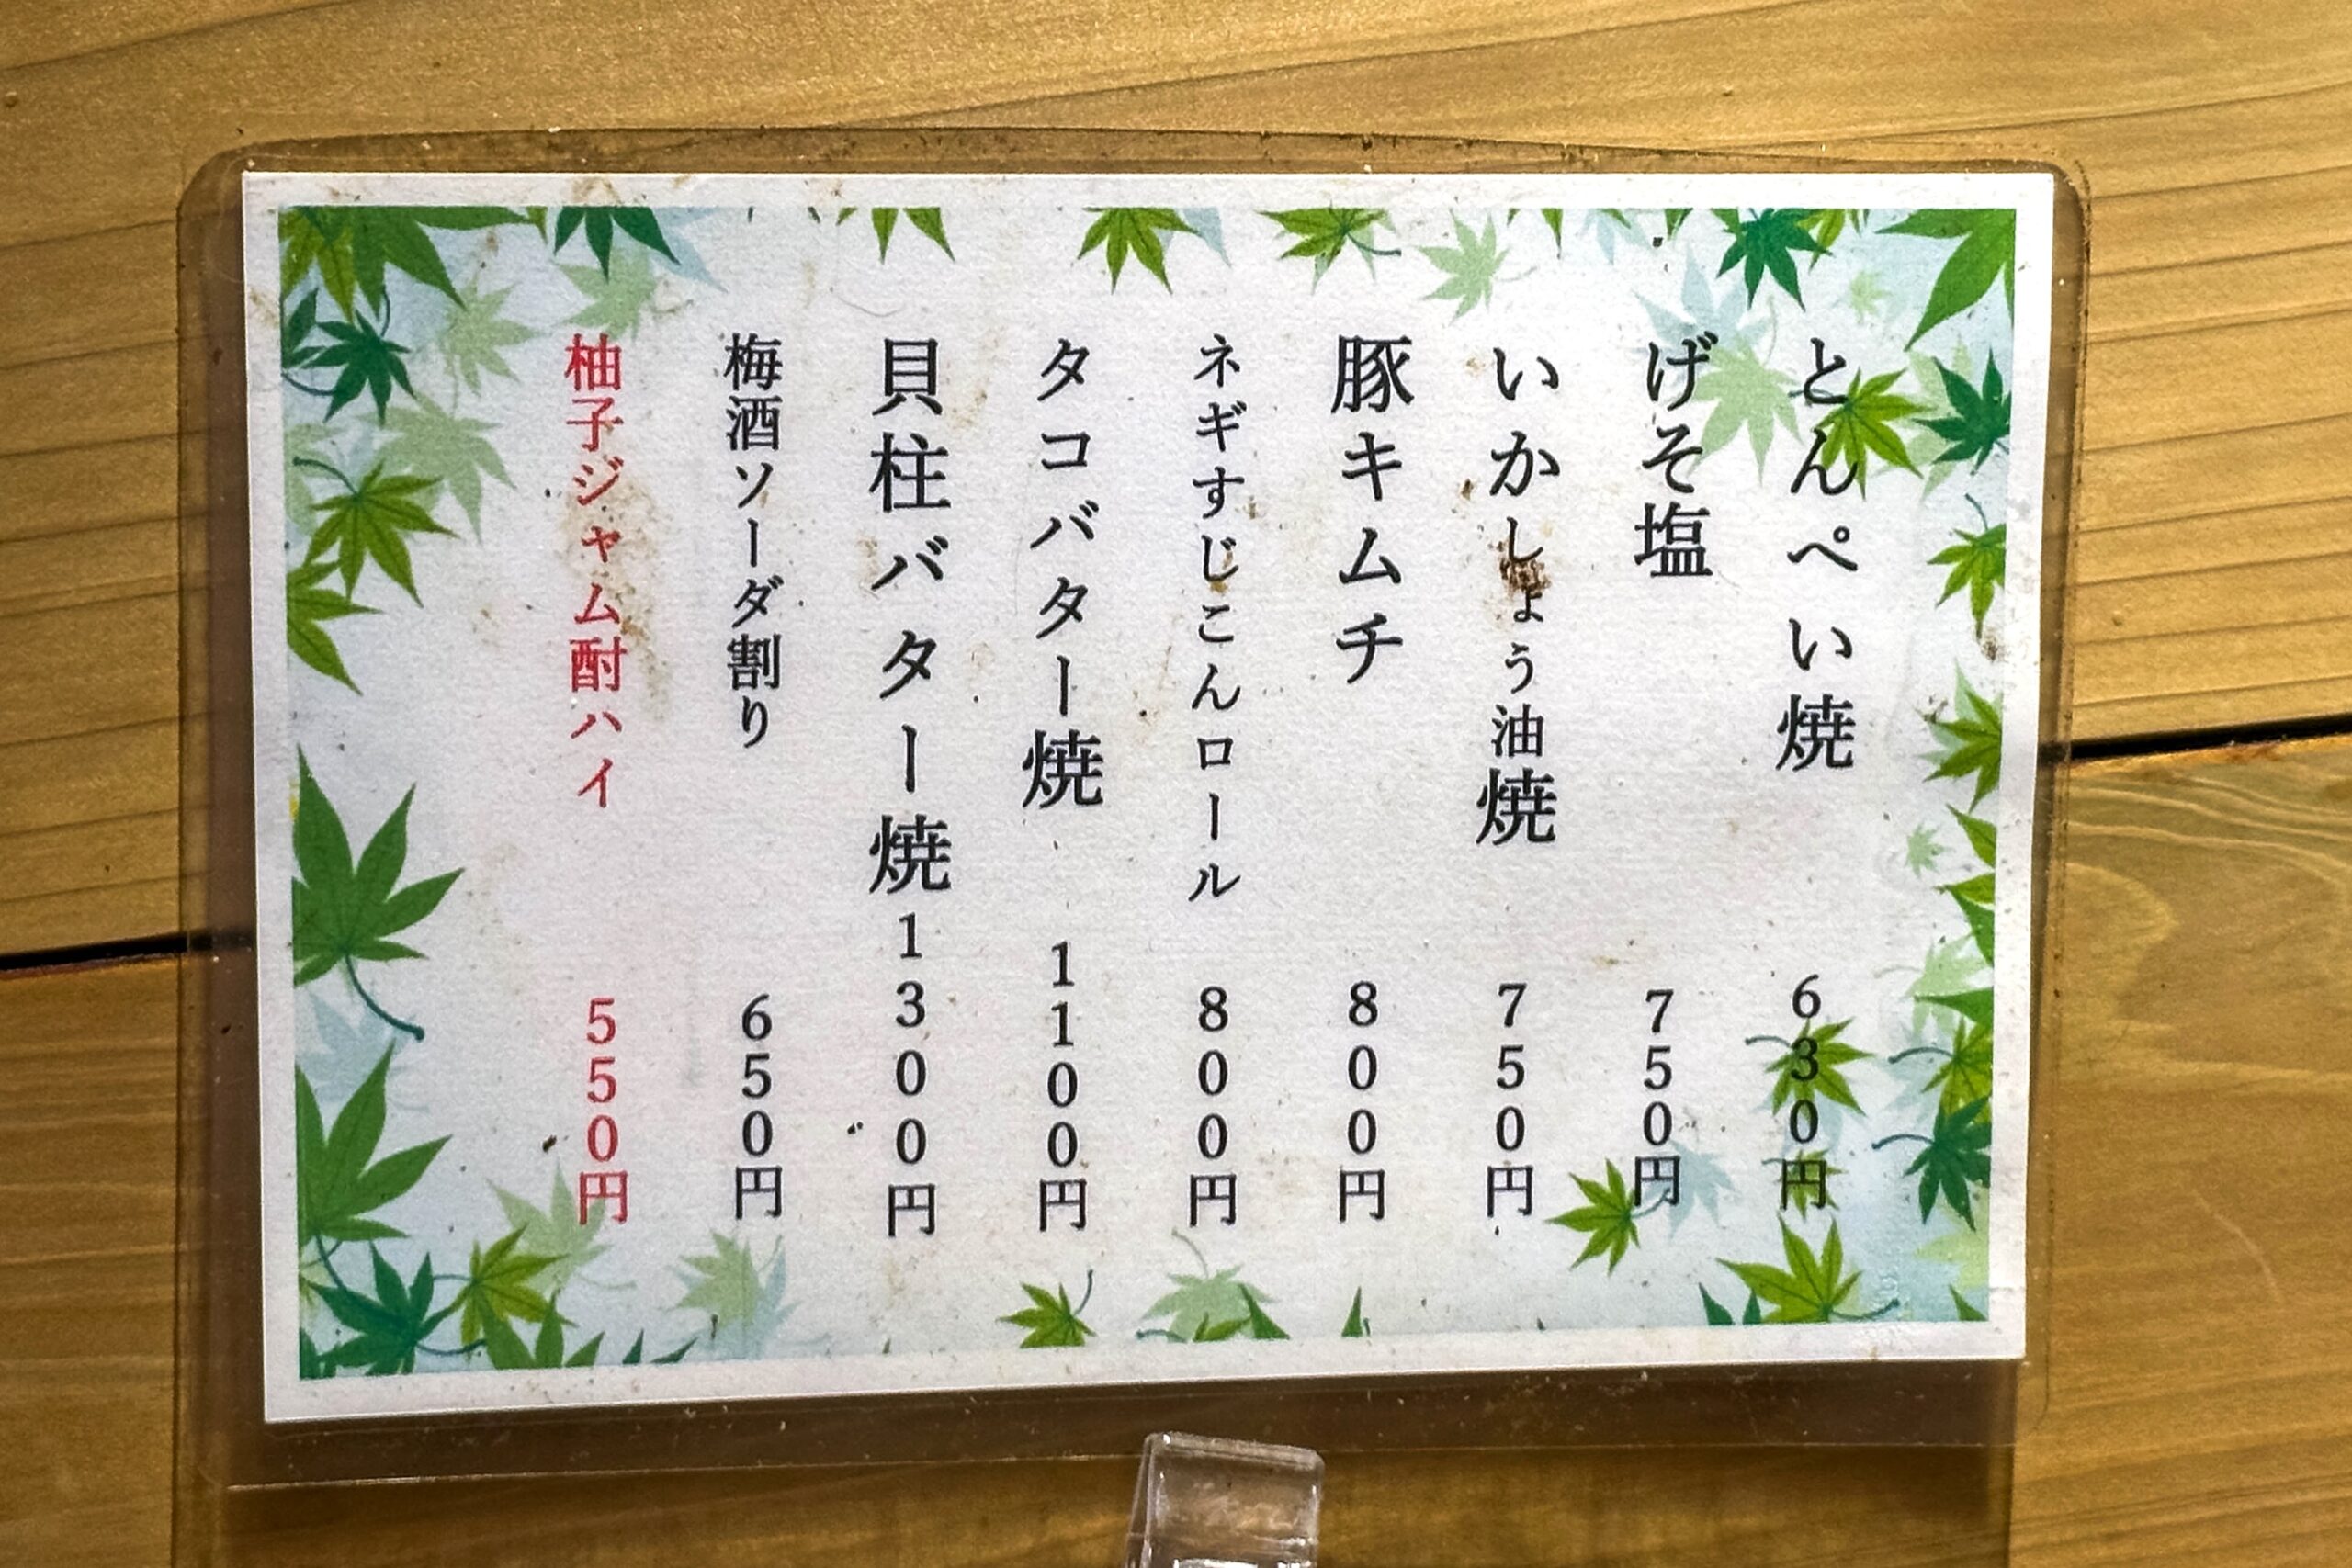 とんぺい焼 630円
げそ塩 750円
いかしょう油焼 750円
豚キムチ 800円
ネギすじこんロール 800円
タコバター焼 1100円
貝柱バター焼 1300円
梅酒ソーダ割り 650円
柚子ジャム酎ハイ 550円